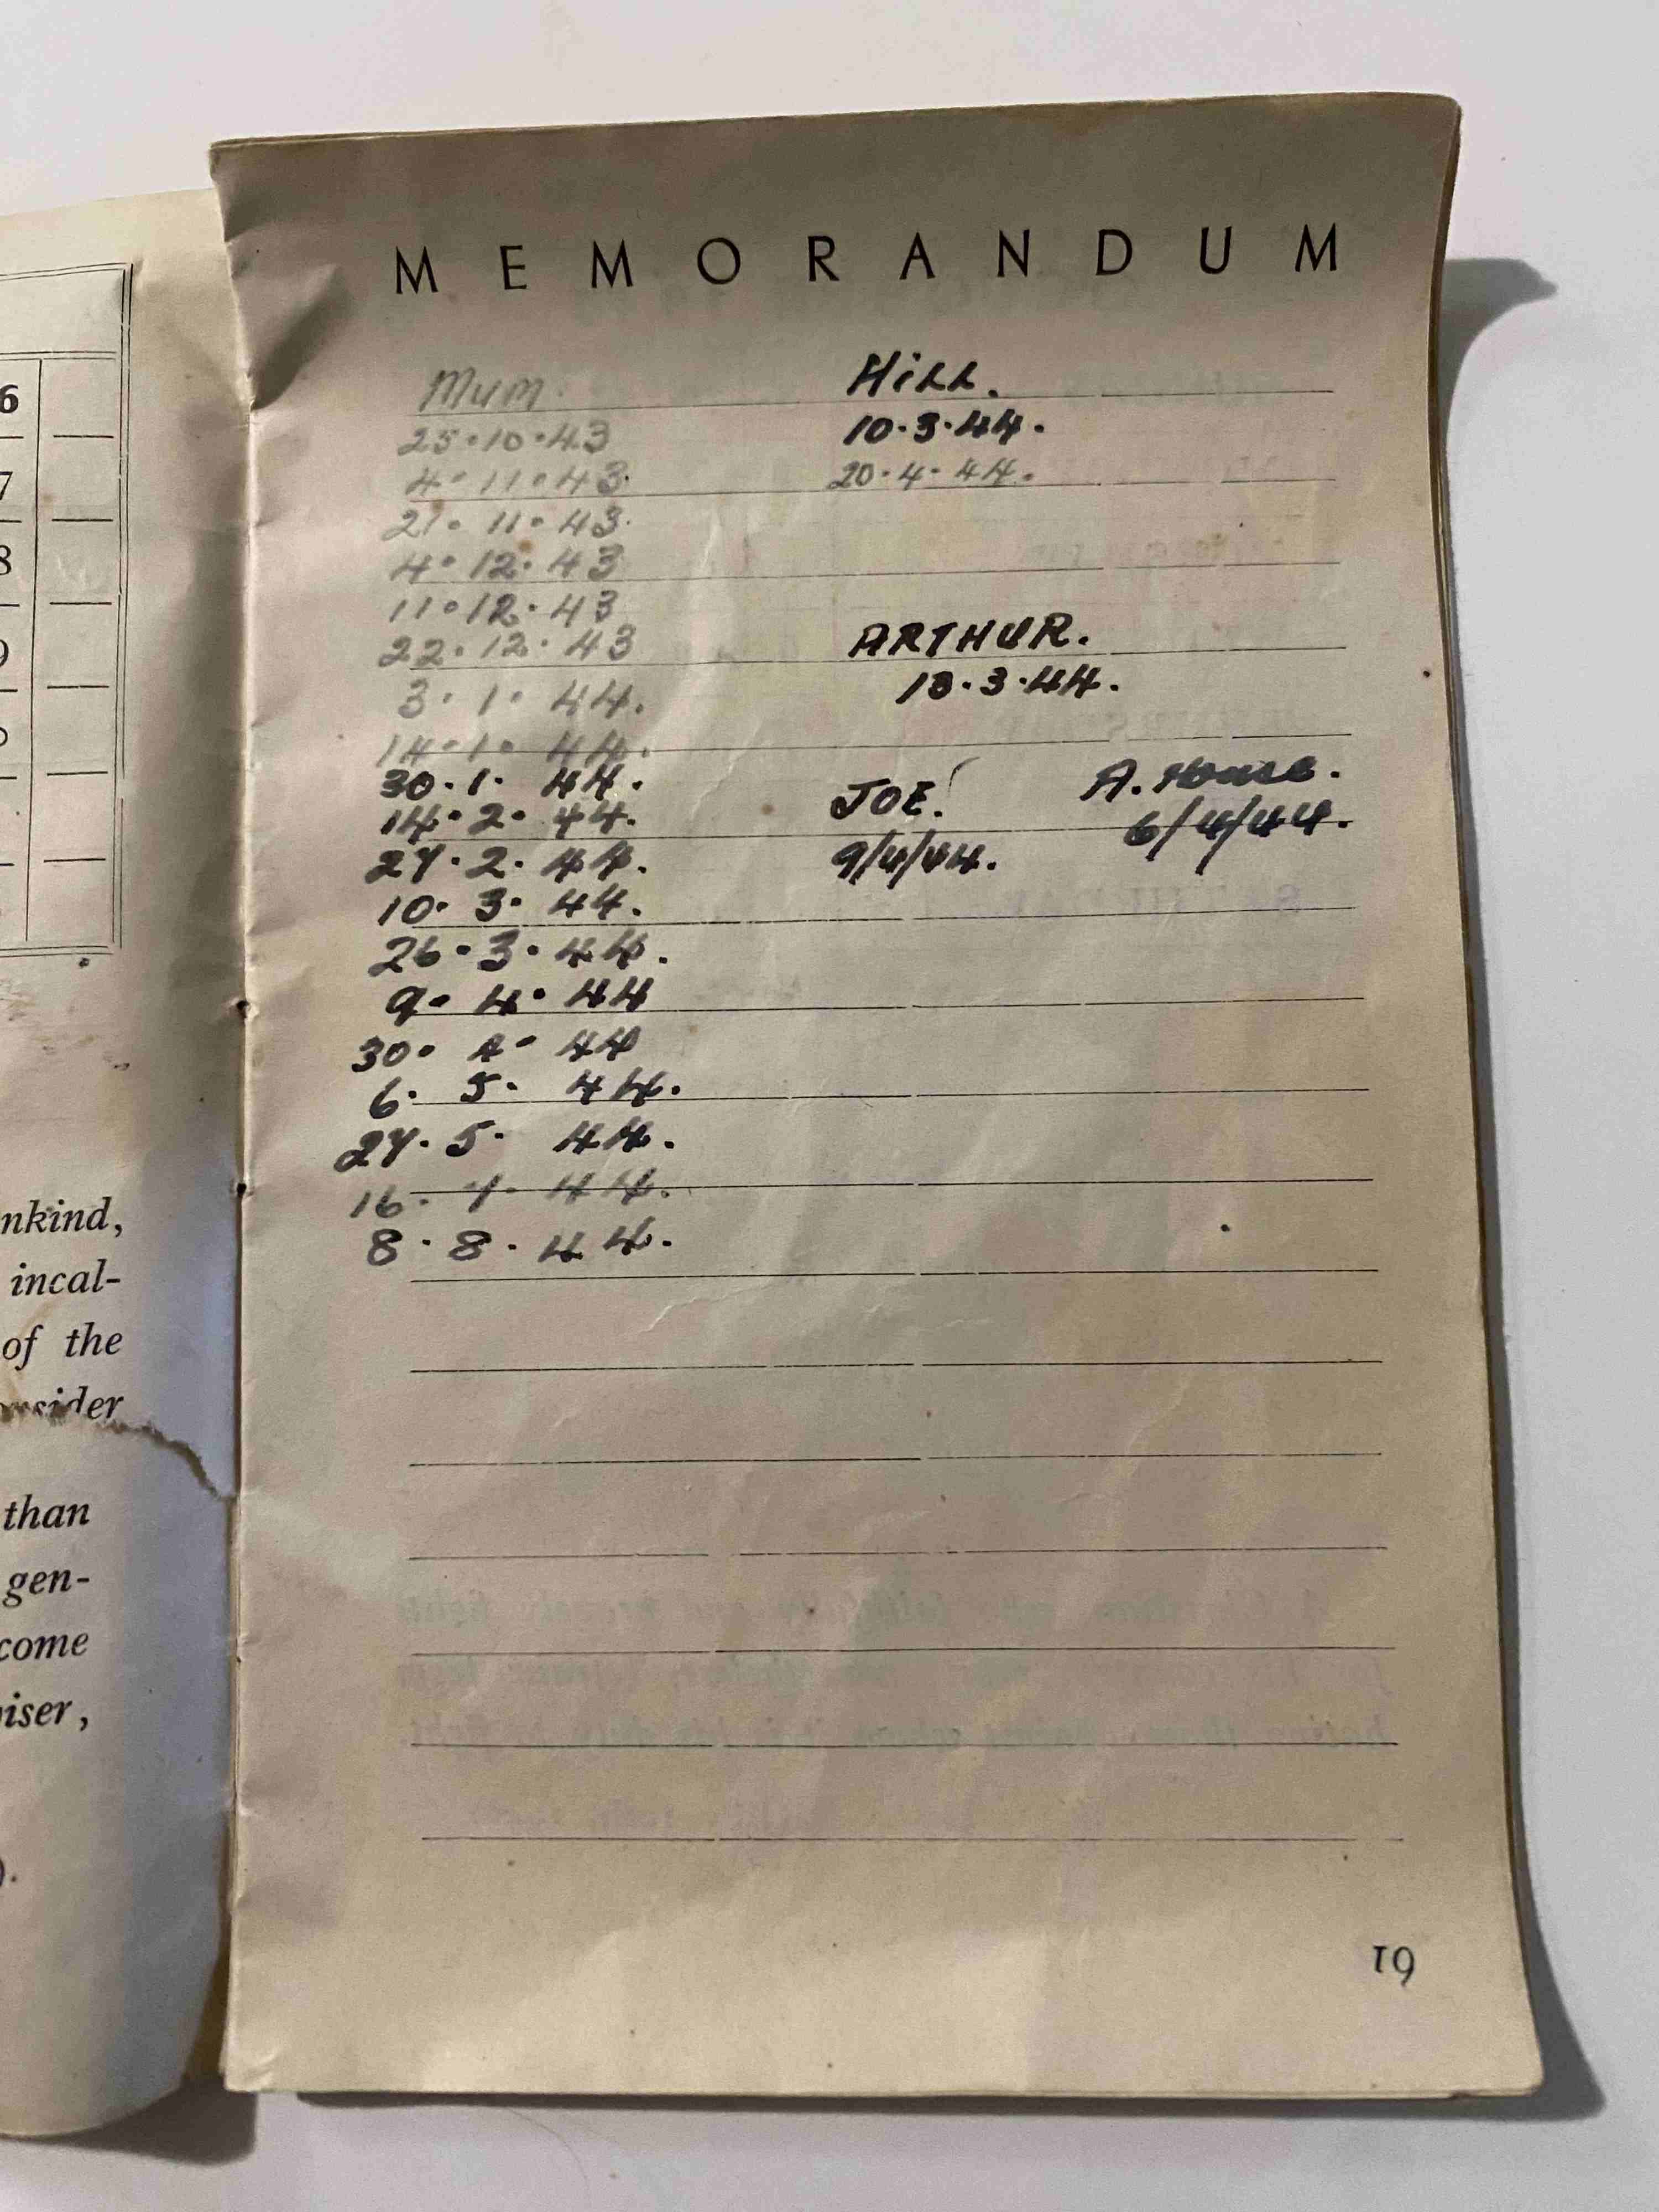 MEMORANDUM
Mum.
25.10.43
4.11.43.
21.11.43.
4.12.43
11.12.43
22.12.43
3.1.44.
14.1.44.
30.1.44.
14.2.44.
27.2.44.
10.3.44.
26.3.44.
9.4.44
30.4.44
6.5.44.
27.5.44.
16.7.44.
8.8.44.
Hill.
10.3.44.
20.4.44.
ARTHUR.
18.3.44.
JOE.
9/4/44.
A. House.
6/4/44.
61
6
7
8
9
nkind,
incal-
of the
than
gen-
come
iser,
).